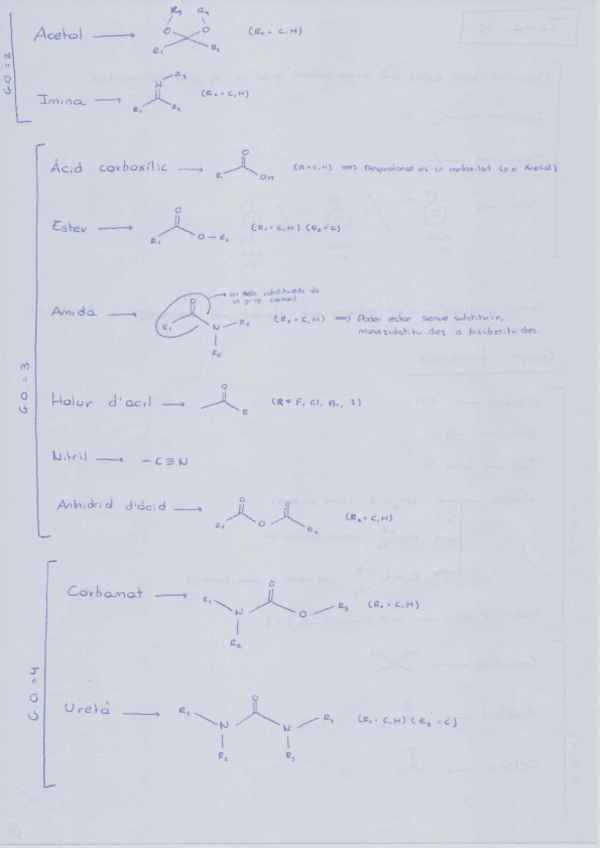 G.O. = 2
Acetal
R3 R4
O O
R1 R2
(Rx = C, H)
Imina
N R3
R1 R2
(Rx = C, H)
G.O. = 3
Àcid carboxílic
O
R OH
(R = C, H) ⟹ Desprotonat és un carboxilat (p.e. Acetat)
Ester
O
R1 O — R2
(R1 = C, H) (R2 = C)
Amida
un dels substituents és
un grup carbonil
O
R1 N R2
R3
(Rx = C, H) ⟹ Poden estar sense substituir,
monosubstituides o bisubstituides.
Halur d'àcil
O
R
(R = F, Cl, Br, I)
Nitril
— C ≡ N
Anhídrid d'àcid
O O
R1 O R2
(Rx = C, H)
G.O. = 4
Carbamat
O
R1 N O R3
R2
(Rx = C, H)
Uretà
O
R1 N N R4
R2 R3
(R1 = C, H) (R2 = C)